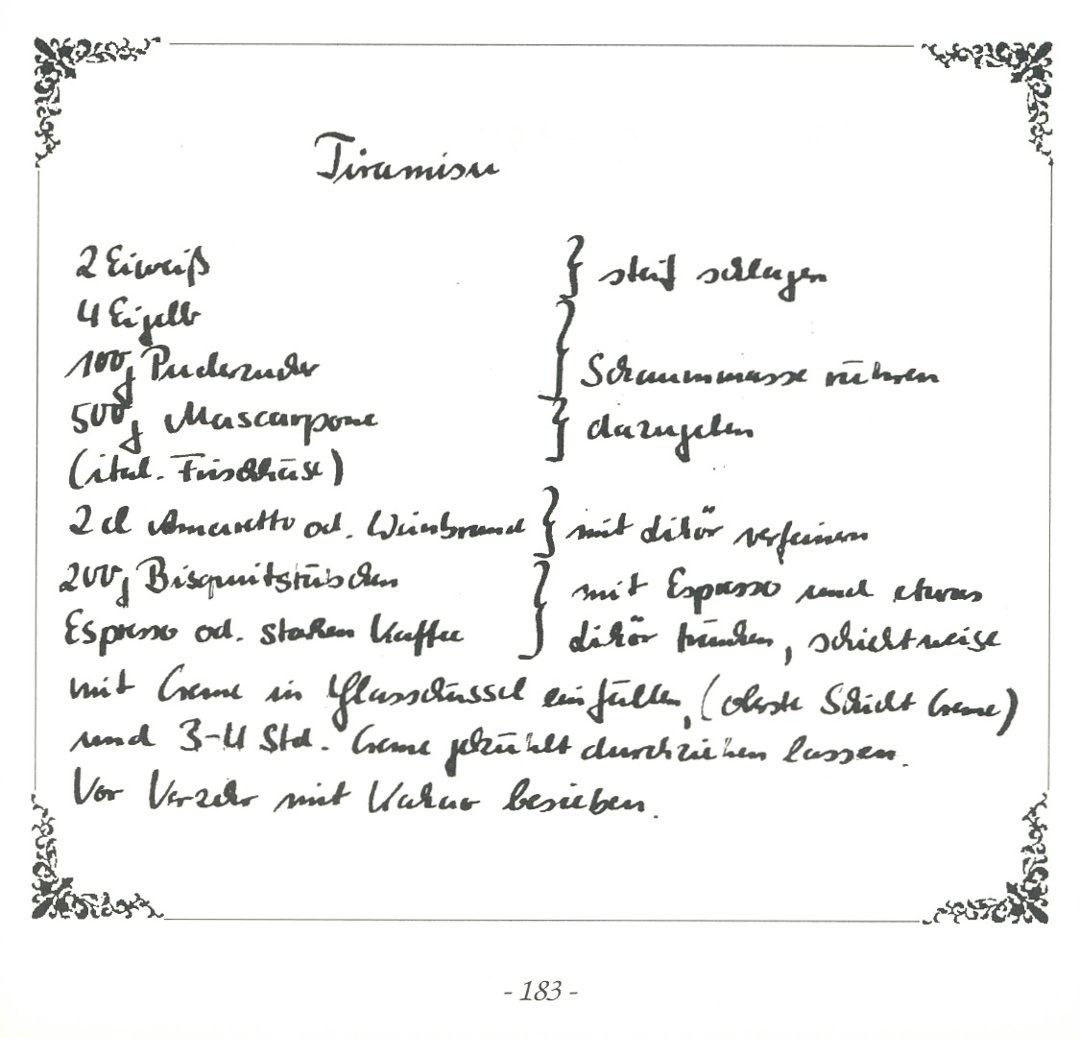 Tiramisu
2 Eiweiß } steif schlagen
4 Eigelb
100g Puderzucker } Schaummasse rühren
500g Mascarpone } dazugeben
(ital. Frischkäse)
2 cl Amaretto od. Weinbrand } mit Likör verfeinern
200g Bisquitstäbchen } mit Espresso und etwas
Espresso od. starken Kaffee } Likör tränken, schichtweise
mit Creme in Glasschüssel einfüllen, (oberste Schicht Creme)
und 3-4 Std. Creme gekühlt durchziehen lassen.
Vor Verzehr mit Kakao besieben.
- 183 -